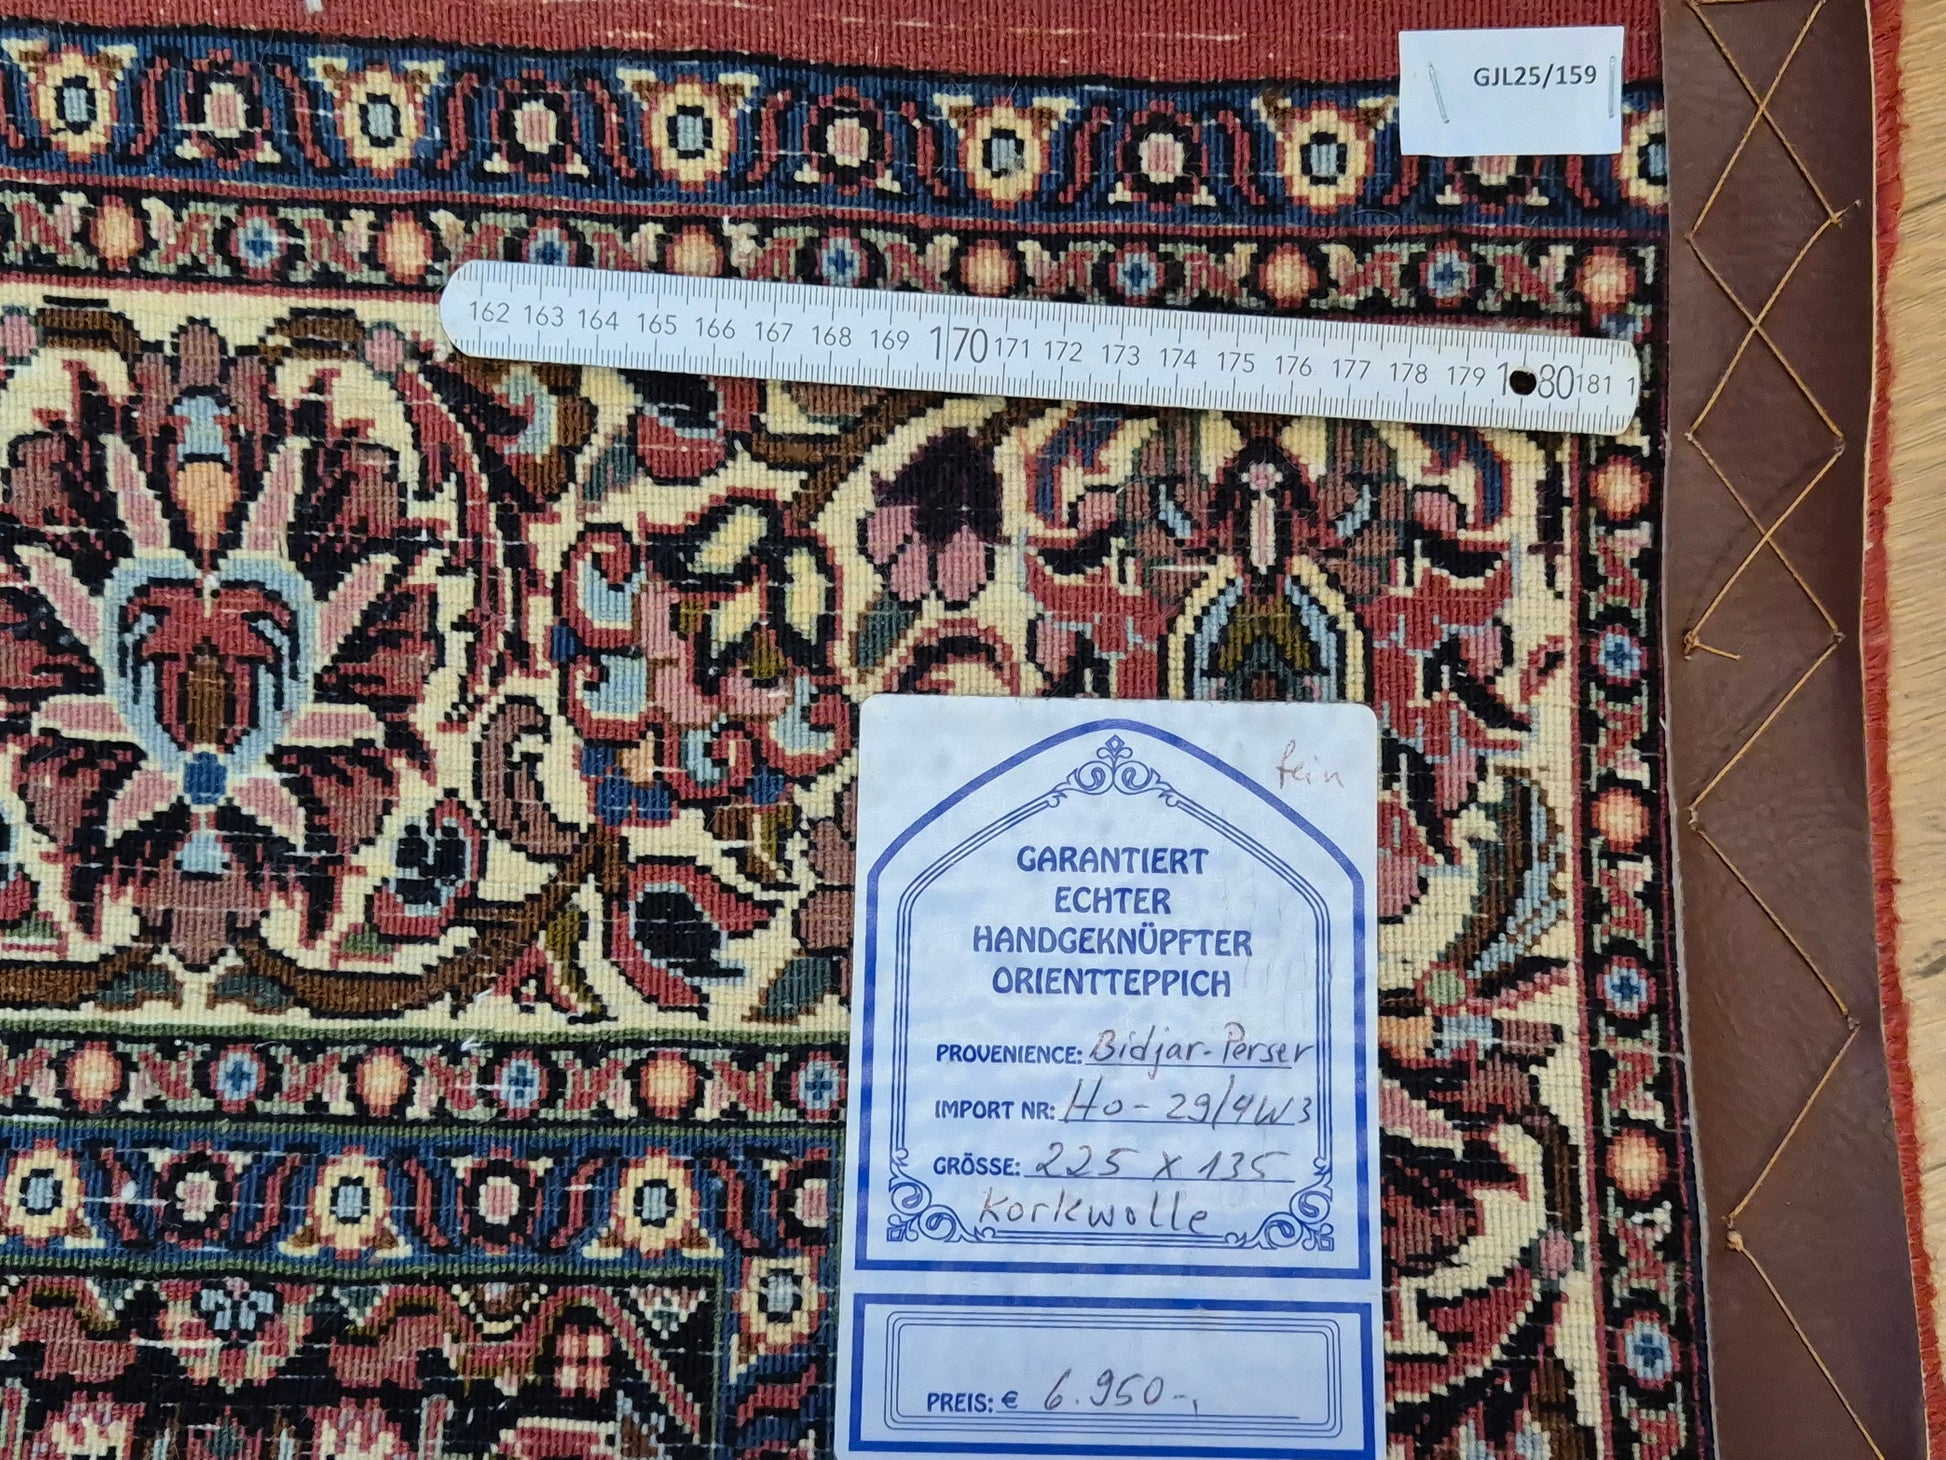 GJL25/159
162 163 164 165 166 167 168 169 170 171 172 173 174 175 176 177 178 179 180 181 1
fein
GARANTIERT
ECHTER
HANDGEKNÜPFTER
ORIENTTEPPICH
PROVENIENCE: Bidjar-Perser
IMPORT NR: Ho-29/4W3
GRÖSSE: 225 x 135
Korkwolle
PREIS: € 6.950-,